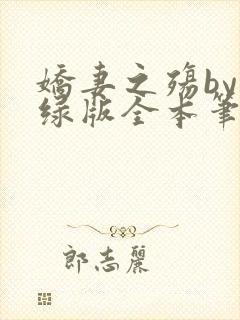 娇妻之殇by
绿版全本笔
郎志丽